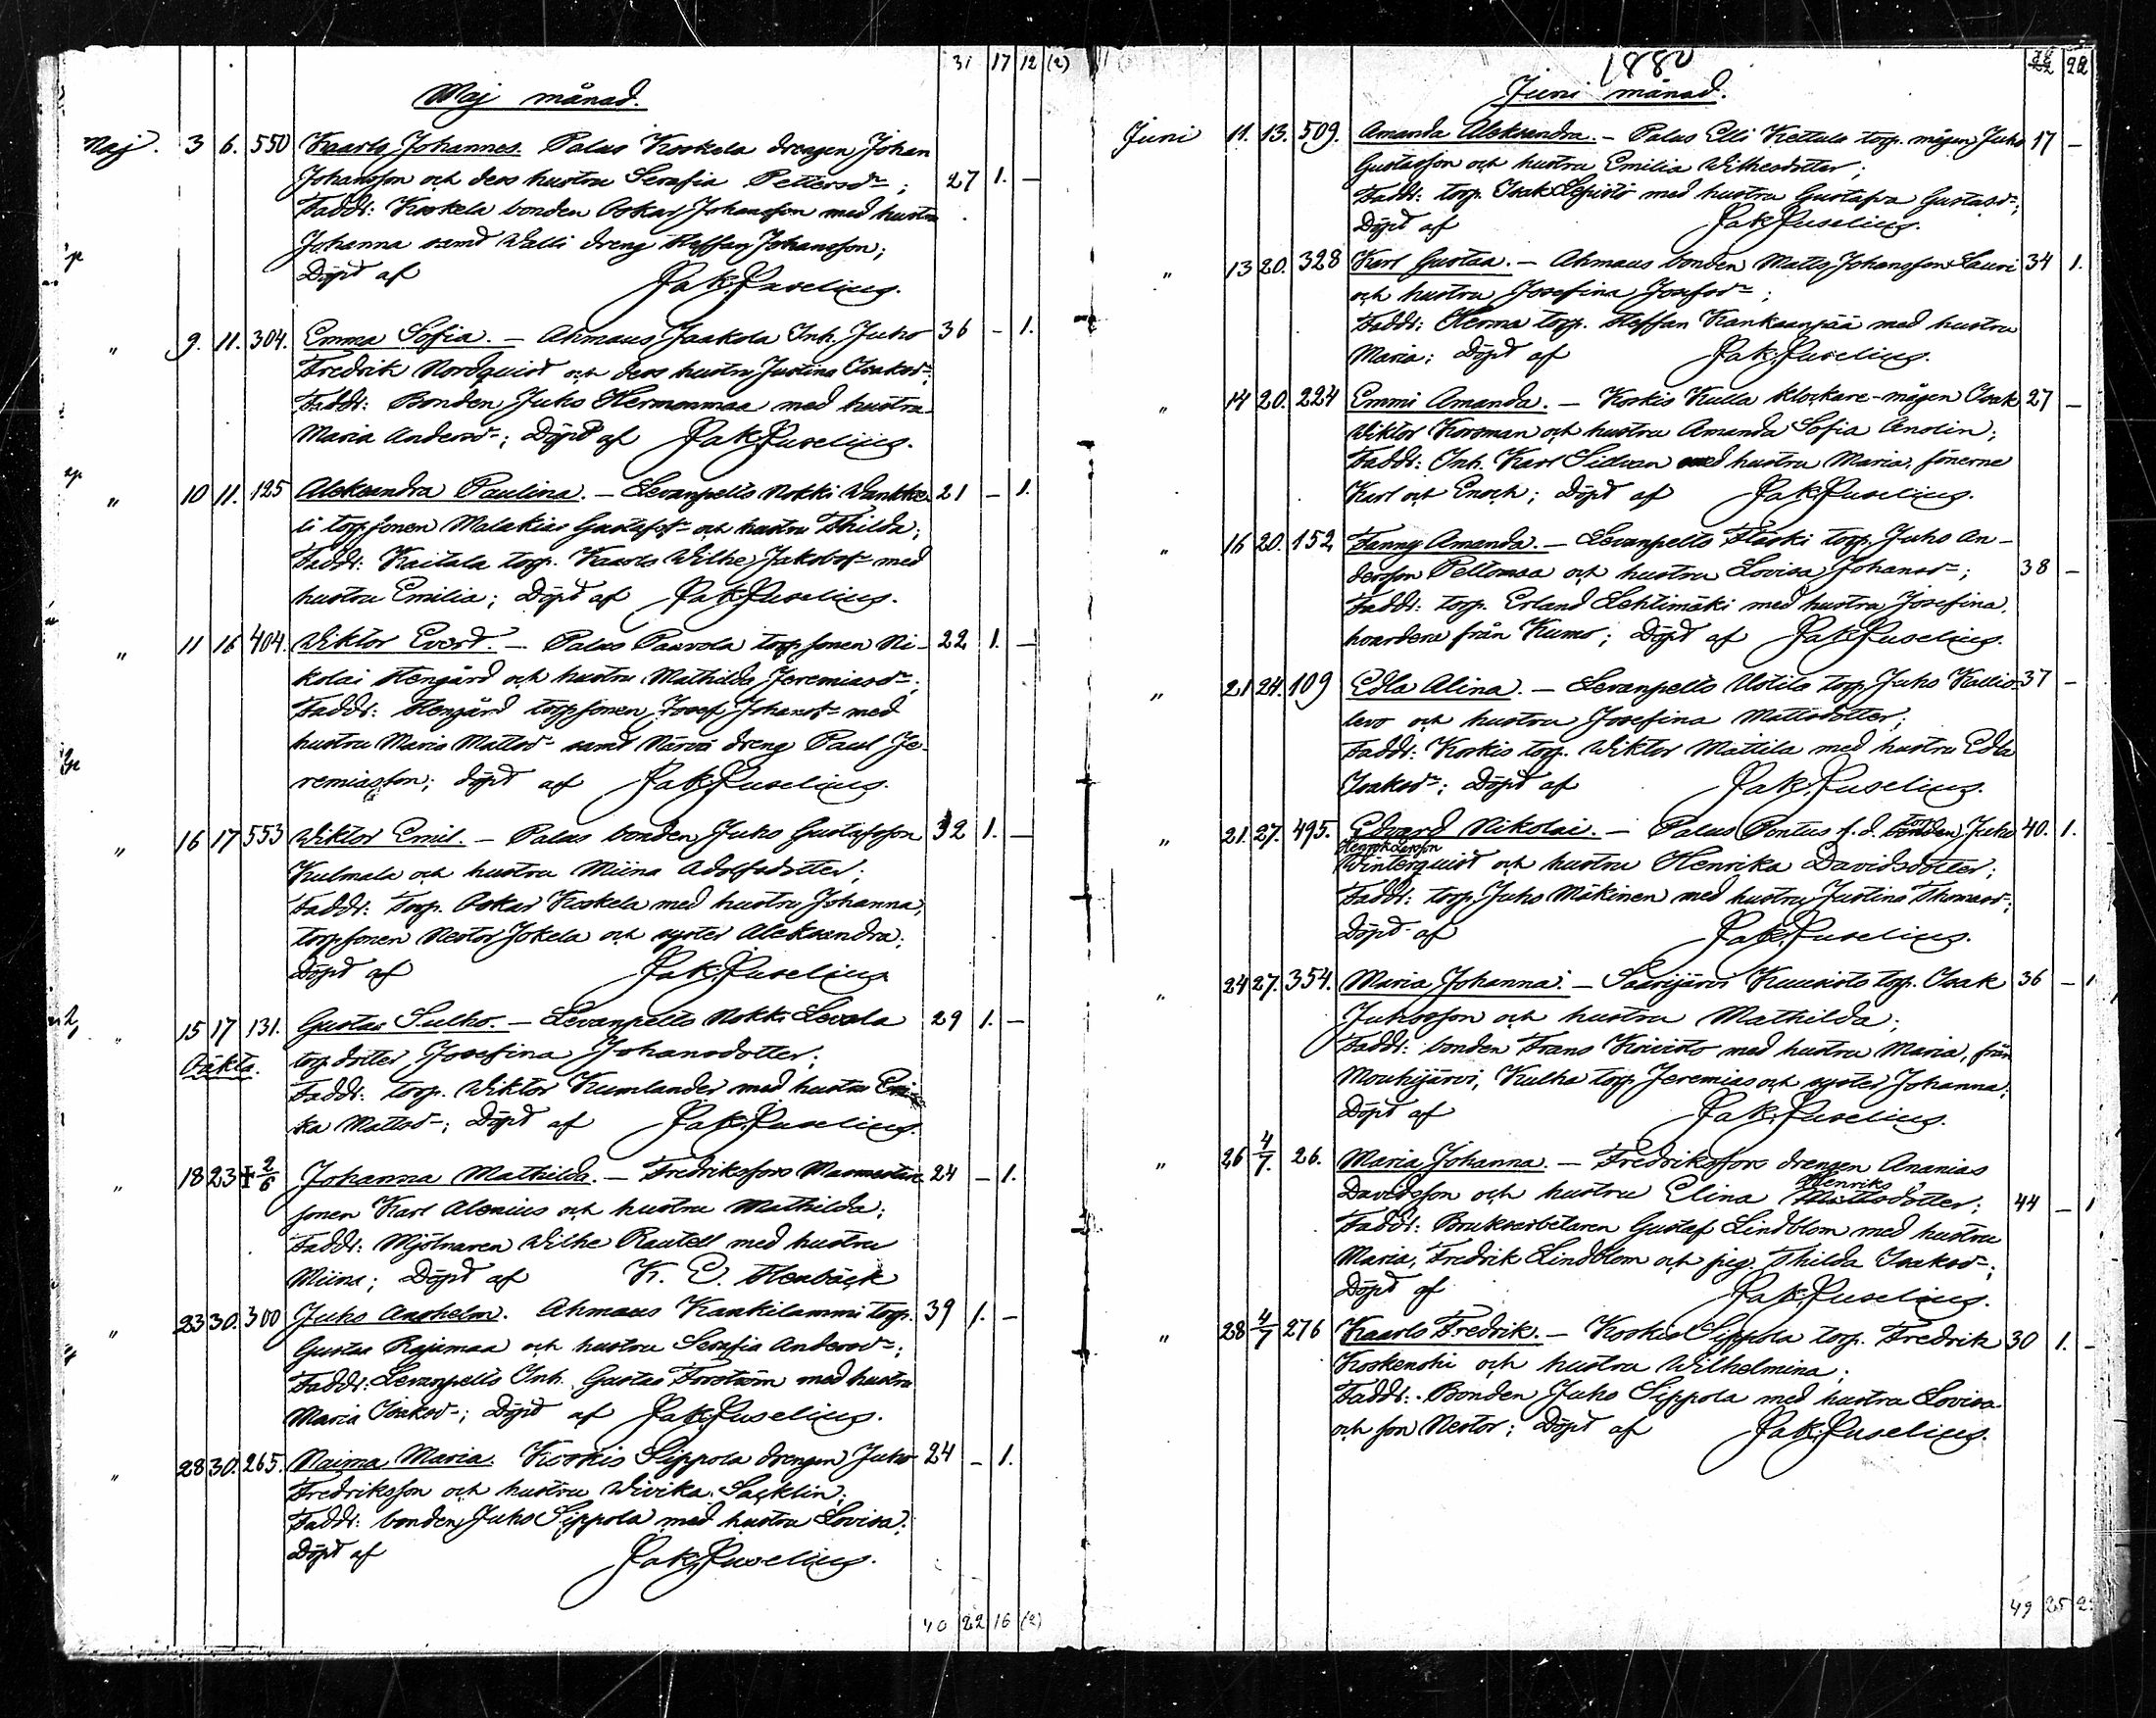 31 17 12 (2)
Maj månad.
Maj. 3 6. 550 Kaarlo Johannes. Palus Koskela drengen Johan
Johansson och dess hustru Serafia Pettersdr; 27 1. —
Faddr: Koskela bonden Oskar Johansson med hustru
Johanna samt Walli dreng Steffan Johansson;
Döpt af Jak. Juselius.
" 9. 11. 304. Emma Sofia. — Ahmaus Jaakola Inh. Juho 36 — 1.
Fredrik Nordquist och dess hustru Justina Isaksdr;
Faddr: Bonden Juho Hermonmaa med hustru
Maria Andersdr; Döpt af Jak. Juselius.
" 10 11. 125 Aleksandra Paulina. — Levanpelto Nokki 21 — 1.
torpsonen Malakias Gustafss. och hustru Thilda;
Faddr: Kaitala torp. Kaarlo Wilhe Jakobss. med
hustru Emilia; Döpt af Jak. Juselius.
" 11 16 404. Wiktor Evert. — Palus Paavola torpsonen Ni- 22 1. —
kolai Stengård och hustru Mathilda Jeremiasdr;
Faddr: Stengård torpsonen Josef Johanss. med
hustru Maria Mattsdr samt Närvä dreng Paul Je-
remiasson; döpt af Jak. Juselius.
" 16 17 553 Wiktor Emil. — Palus bonden Juho Gustafsson 32 1. —
Kulmala och hustru Miina Adolfsdotter;
Faddr: Torp. Oskar Koskela med hustru Johanna,
torpsonen Nestor Jokela och syster Aleksandra;
Döpt af Jak. Juselius
" 15 17 131. Gustav Sulho. — Levanpelto Nokki Levola 29 1. —
Oäkta. torp.dotter Josefina Johansdotter;
Faddr: torp. Wiktor Kumlander med hustru Eri-
ka Mattsdr; Döpt af Jak. Juselius.
" 18 23 † 2/6 Johanna Mathilda. — Fredriksfors 24 — 1.
sonen Karl Alenius och hustru Mathilda;
Faddr: Mjölnaren Wilhe Rautell med hustru
Miina; Döpt af K. E. Stenbäck
" 23 30. 300 Juho Anshelm. Ahmaus Kankilammi torp. 39 1. —
Gustav Rajamaa och hustru Serafia Andersdr;
Faddr: Levanpelto Inh. Gustav Forström med hustru
Maria Isaksdr; Döpt af Jak. Juselius.
" 28 30. 265. Naima Maria. Koskis Sippola drengen Juho 24 — 1.
Fredriksson och hustru Wivika Sacklin;
Faddr: bonden Juho Sippola med hustru Lovisa;
Döpt af Jak. Juselius.
40 22 16 (2)
1880
22 22
Juni månad.
Juni 11. 13. 509. Amanda Aleksandra. — Palus Elli Kettula torp. mågen Juho 17 —
Gustafsson och hustru Emilia Wilhesdotter;
Faddr: torp. Isak Lepistö med hustru Gustafva Gustafsdr;
Döpt af Jak. Juselius.
" 13 20. 328 Karl Gustaa. — Ahmaus bonden Matts Johansson Lauri 34 1.
och hustru Josefina Josefsdr;
Faddr: Herma torp. Steffan Kankaanpää med hustru
Maria; Döpt af Jak. Juselius.
" 14 20. 224 Emmi Amanda. — Koskis Kulla klockare-mågen Isak 27 —
Wiktor Korsman och hustru Amanda Sofia Anolin;
Faddr: Inh. Karl Sidvan med hustru Maria, sönerne
Karl och Enoch; Döpt af Jak. Juselius.
" 16 20. 152 Fanny Amanda. — Levanpelto Fläski torp. Juho An-
dersson Peltomaa och hustru Lovisa Johansdr; 38 —
Faddr: torp. Erland Lehtimäki med hustru Josefina,
hvardera från Kumo; Döpt af Jak. Juselius.
" 21 24. 109 Edla Alina. — Levanpelto Uotila torp. Juho Kallio- 37 —
levo och hustru Josefina Mattsdotter;
Faddr: Koskis torp. Wiktor Mattila med hustru Edla
Isaksdr; Döpt af Jak. Juselius.
" 21. 27. 495. Edvard Nikolai. — Palus Pontus f.d. bonden torp. Juho 40. 1.
Henriksson
Winterquist och hustru Henrika Davidsdotter;
Faddr: torp. Juho Mäkinen med hustru Justina Thomasdr;
Döpt af Jak. Juselius.
" 24 27. 354. Maria Johanna. — Saarijärvi Kuusisto torp. Isak 36 — 1.
Juhosson och hustru Mathilda;
Faddr: bonden Frans Koivisto med hustru Maria, från
Mouhijärvi, Kulha torp. Jeremias och syster Johanna;
Döpt af Jak. Juselius.
" 26 4/7. 26. Maria Johanna. — Fredriksfors drengen Ananias
Henriks
Davidsson och hustru Elina Mattsdotter; 44 — 1
Faddr: Bruksarbetaren Gustaf Lindblom med hustru
Maria, Fredrik Lindblom och pig. Thilda Isaksdr;
Döpt af Jak. Juselius.
" 28 4/7 276 Kaarlo Fredrik. — Koskis Sippola torp. Fredrik 30 1. —
Koskenoki och hustru Wilhelmina;
Faddr: Bonden Juho Sippola med hustru Lovisa
och son Nestor; Döpt af Jak. Juselius.
49 25 2